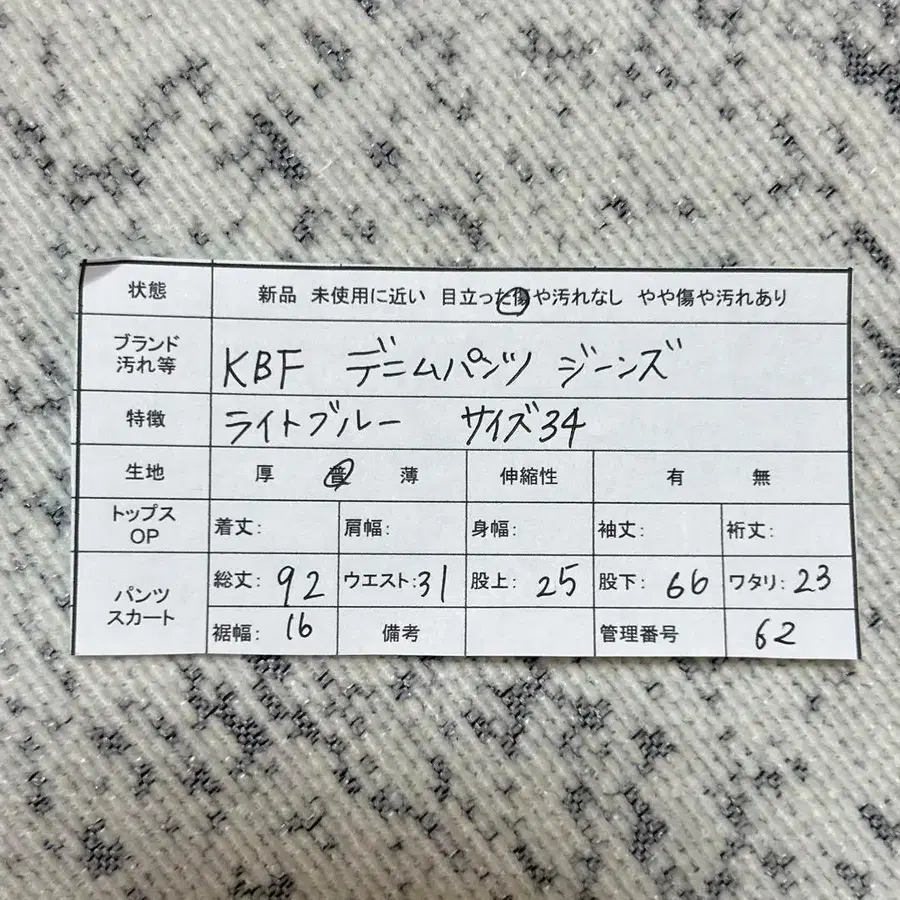 状態 新品 未使用に近い 目立った傷や汚れなし やや傷や汚れあり
ブランド
汚れ等
KBF デニムパンツ ジーンズ
特徴 ライトブルー サイズ34
生地 厚 普 薄 伸縮性 有 無
トップス
OP
着丈: 肩幅: 身幅: 袖丈: 裄丈:
パンツ
スカート
総丈: 92 ウエスト: 31 股上: 25 股下: 66 ワタリ: 23
裾幅: 16 備考 管理番号 62